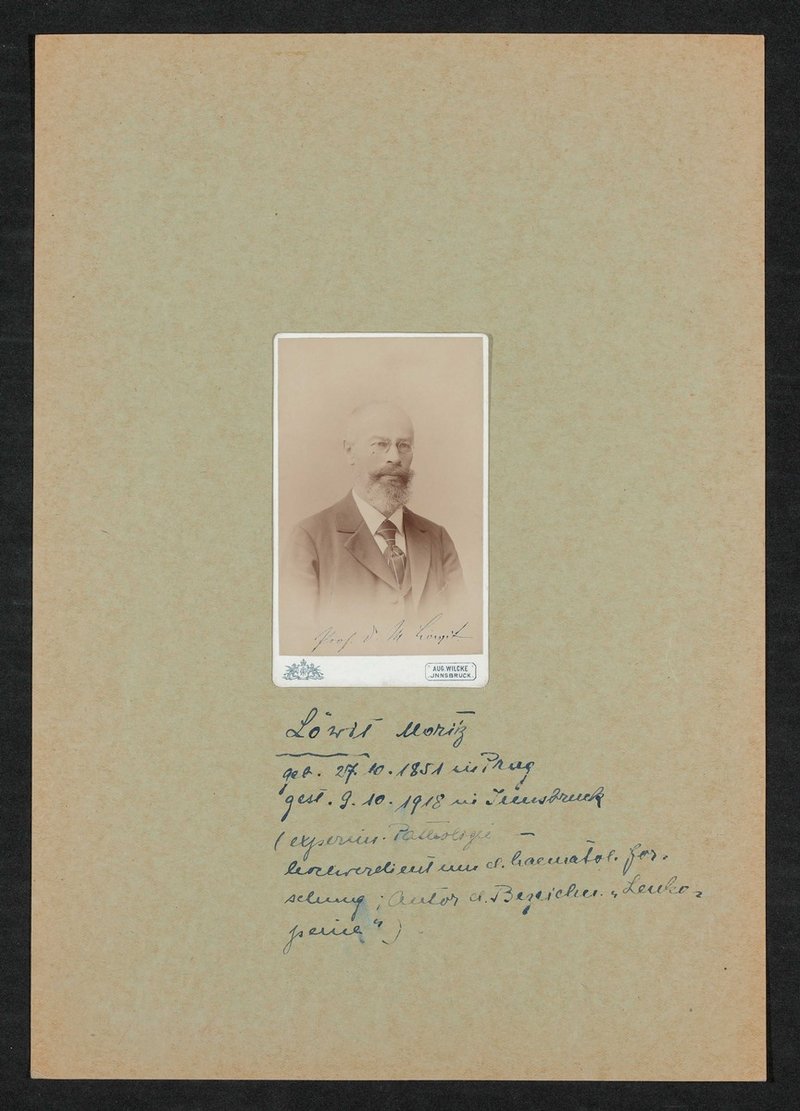 Prof. Dr M Löwit
AUG. WILCKE
JNNSBRUCK.
Löwit Moritz
geb. 27. 10. 1851 in Prag
gest. 9. 10. 1918 in Innsbruck
(experim. Pathologie —
hochverdient um d. haematol. For-
schung; Autor d. Bezeichn. „Leuko=
penie")